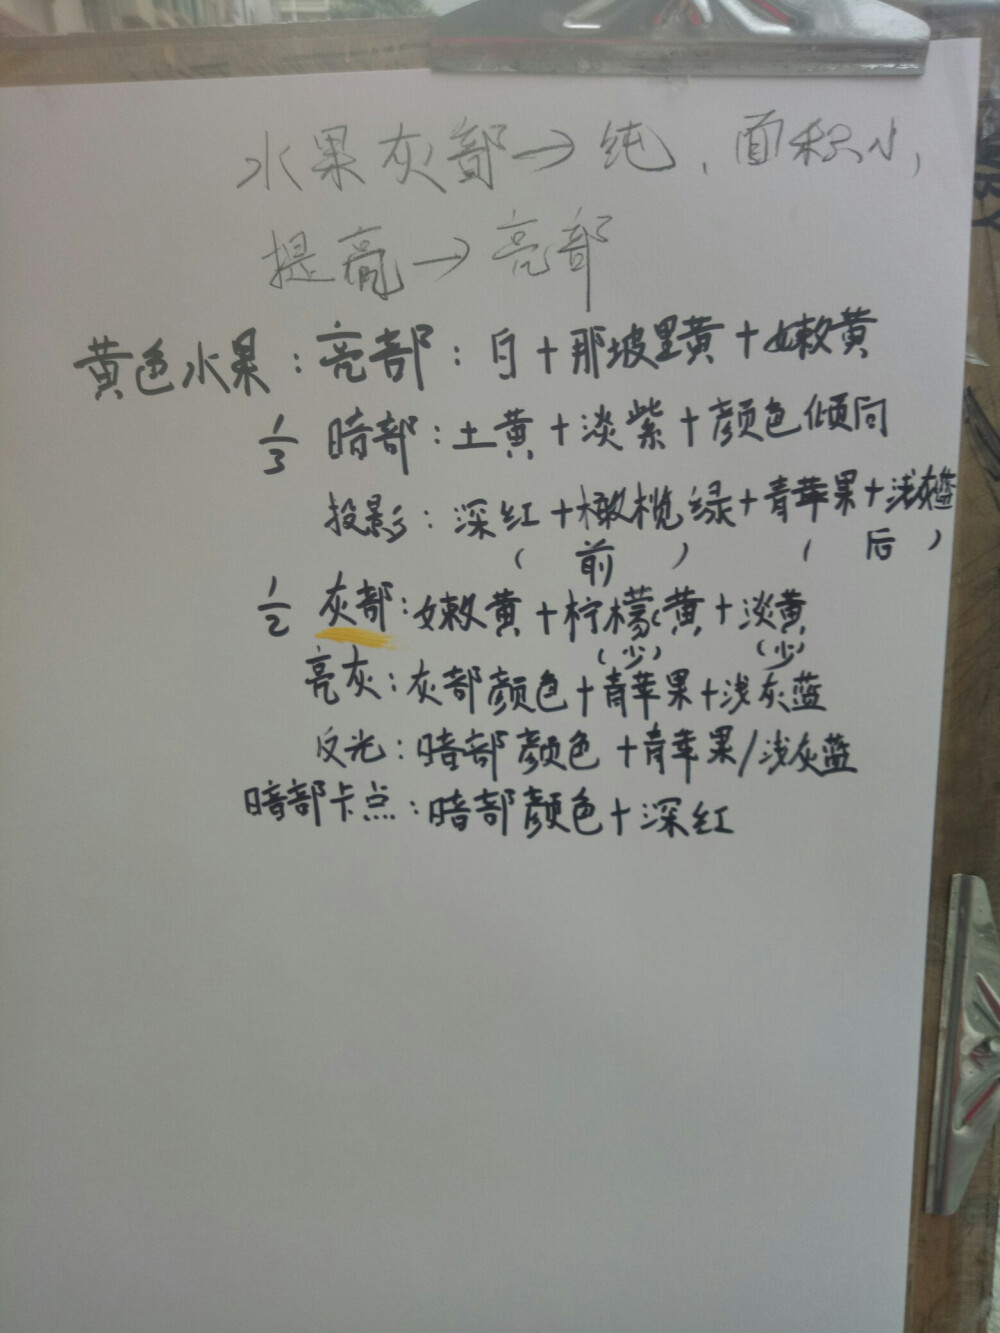 水果灰部→纯、面积小,
提高→亮部
黄色水果:亮部:白+那坡里黄+嫩黄
1/3 暗部:土黄+淡紫+颜色倾向
投影:深红+橄榄绿+青苹果+浅灰蓝
(前) (后)
1/2 灰部:嫩黄+柠檬黄+淡黄
(少) (少)
亮灰:灰部颜色+青苹果+浅灰蓝
反光:暗部颜色+青苹果/浅灰蓝
暗部卡点:暗部颜色+深红